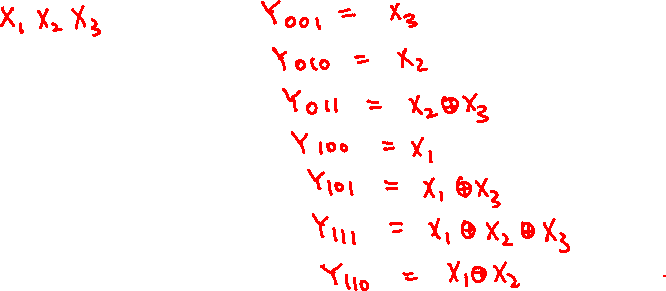 X₁ X₂ X₃ Y₀₀₁ = X₃
Y₀₁₀ = X₂
Y₀₁₁ = X₂⊕X₃
Y₁₀₀ = X₁
Y₁₀₁ = X₁⊕X₃
Y₁₁₁ = X₁⊕X₂⊕X₃
Y₁₁₀ = X₁⊕X₂